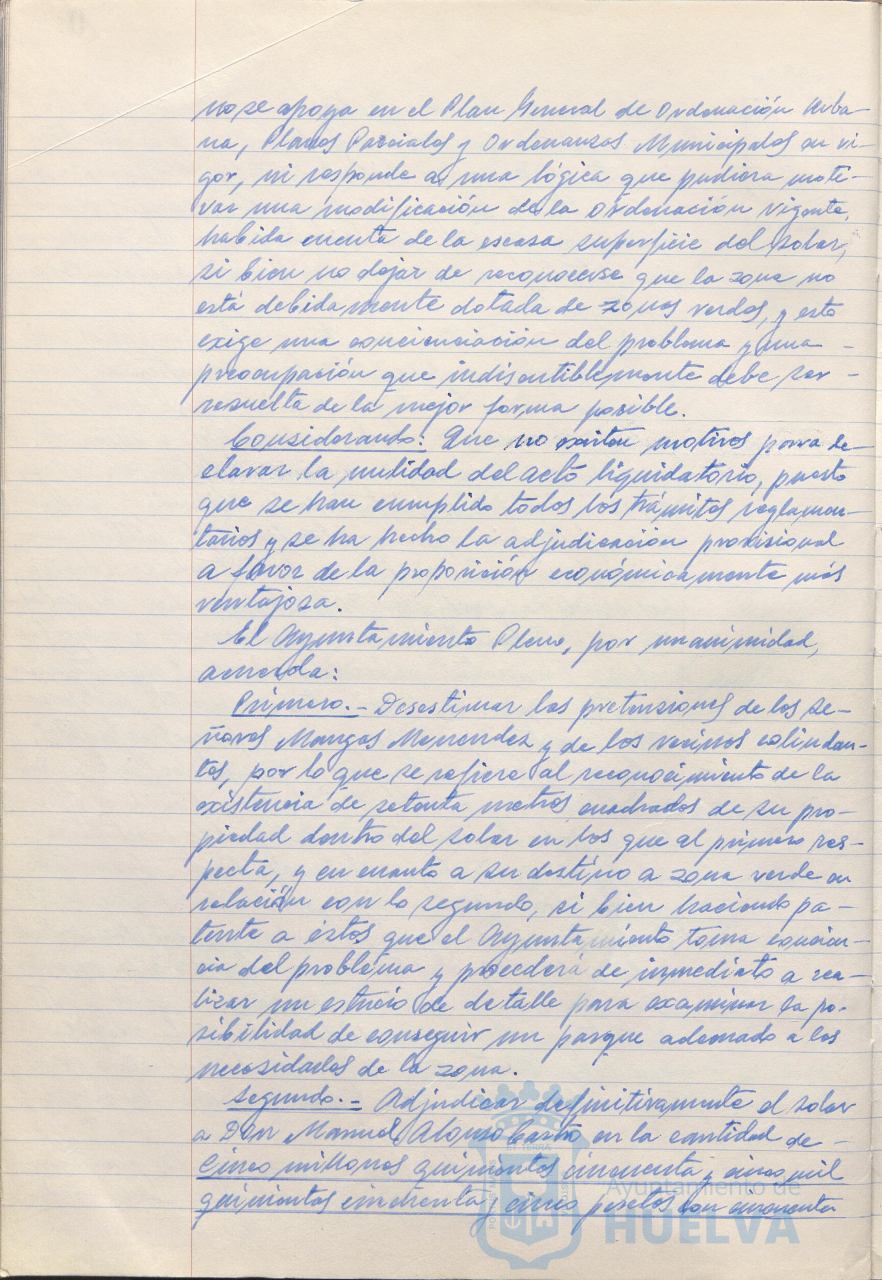 no se apoya en el Plan General de Ordenación Urba-
na, Planes Parciales y Ordenanzas Municipales en vi-
gor, ni responde a una lógica que pudiera moti-
var una modificación de la Ordenación vigente,
habida cuenta de la escasa superficie del solar,
si bien no dejar de reconocerse que la zona no
está debidamente dotada de zonas verdes, y esto
exige una concienciación del problema y una -
preocupación que indiscutiblemente debe ser -
resuelta de la mejor forma posible.
Considerando: Que no existen motivos para de-
clarar la nulidad del acto liquidatorio, puesto
que se han cumplido todos los trámites reglamen-
tarios y se ha hecho la adjudicación provisional
a favor de la proposición económicamente más
ventajosa.
El Ayuntamiento Pleno, por unanimidad,
acuerda:
Primero.- Desestimar las pretensiones de los se-
ñores Mangas Menendez y de los vecinos colindan-
tes, por lo que se refiere al reconocimiento de la
existencia de setenta metros cuadrados de su pro-
piedad dentro del solar en los que al primero res-
pecta, y en cuanto a su destino a zona verde en
relación con lo segundo, si bien haciendo pa-
tente a éstos que el Ayuntamiento toma concien-
cia del problema y procederá de inmediato a rea-
lizar un estucio de detalle para examinar la po-
sibilidad de conseguir un parque adecuado a las
necesidades de la zona.
Segundo.- Adjudicar definitivamente el solar
a Don Manuel Alonso Castro en la cantidad de -
cinco millones quinientos cincuenta y cinco mil
quinientos cincuenta y cinco pesetas con cincuenta
Ayuntamiento de
HUELVA